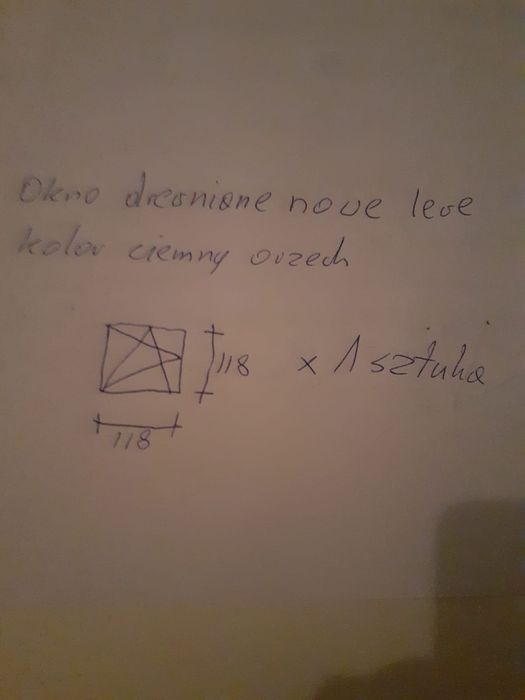 Okno drewniane nowe lewe
kolor ciemny orzech
118 x 1 sztuka
118